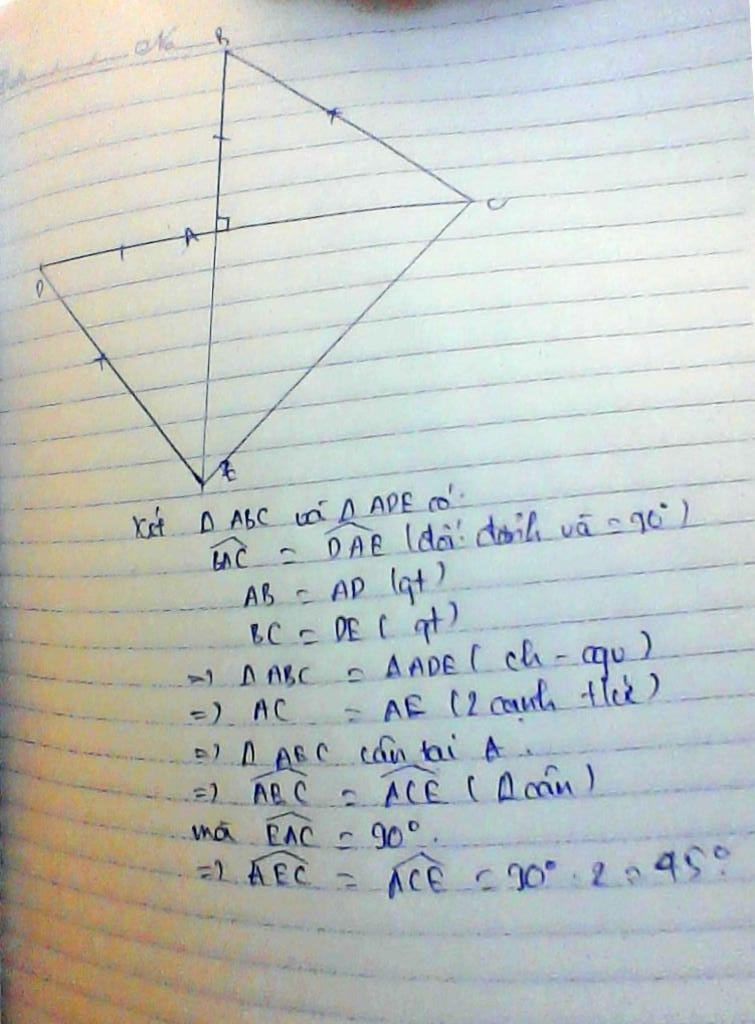 No
B
C
A
D
E
Xét Δ ABC và Δ ADE có:
BAC = DAE (đối đỉnh và = 90°)
AB = AD (gt)
BC = DE (gt)
=) Δ ABC = Δ ADE (ch - cgv)
=) AC = AE (2 cạnh t/ứ)
=) Δ AEC cân tại A.
=) AEC = ACE (Δ cân)
mà EAC = 90°.
=) AEC = ACE = 90° : 2 = 45°